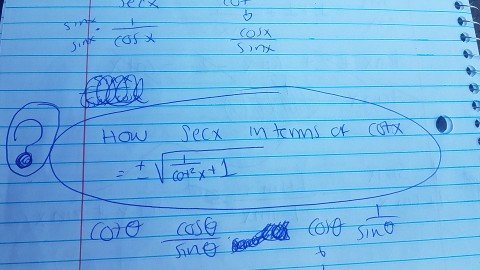 secx cot
sinx/sinx · 1/cosx cosx/sinx
How secx in terms of cotx
= ± √(1/cot²x + 1)
?
cotθ cosθ/sinθ · cosθ 1/sinθ